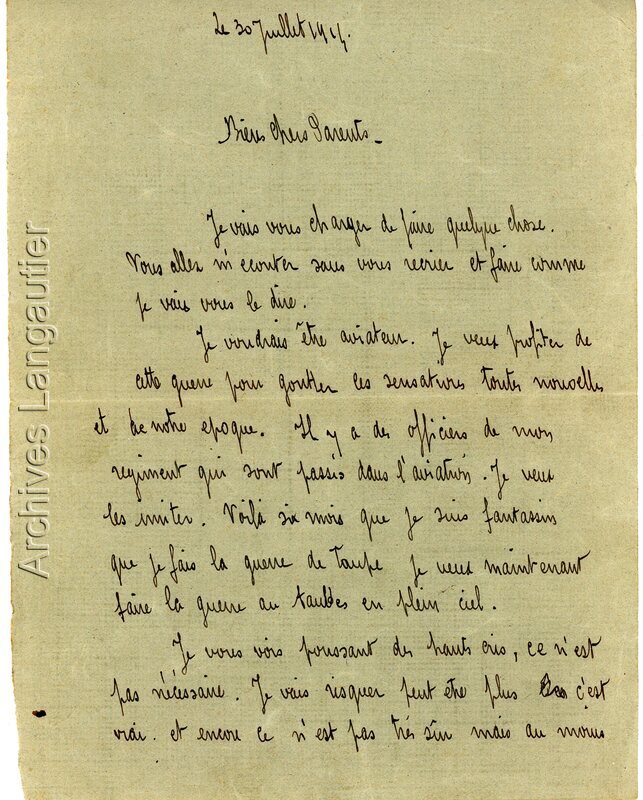 Le 30 Juillet 1915.
Biens chers Parents_
Je vais vous charger de faire quelque chose.
Vous allez m'ecouter sans vous recrier et faire comme
je vais vous le dire.
Je voudrais être aviateur. Je veux profiter de
cette guerre pour goutter ces sensations toutes nouvelles
et de notre epoque. Il y a des officiers de mon
regiment qui sont passés dans l'aviation. Je veux
les imiter. Voilà six mois que je suis fantassin
que je fais la guerre de Taupe je veux maintenant
faire la guerre au taubes en plein ciel.
Je vous vois poussant des hauts cris, ce n'est
pas nécessaire. Je vais risquer peut etre plus c'est
vrai. et encore ce n'est pas très sûr mais au moins
Archives Langautier